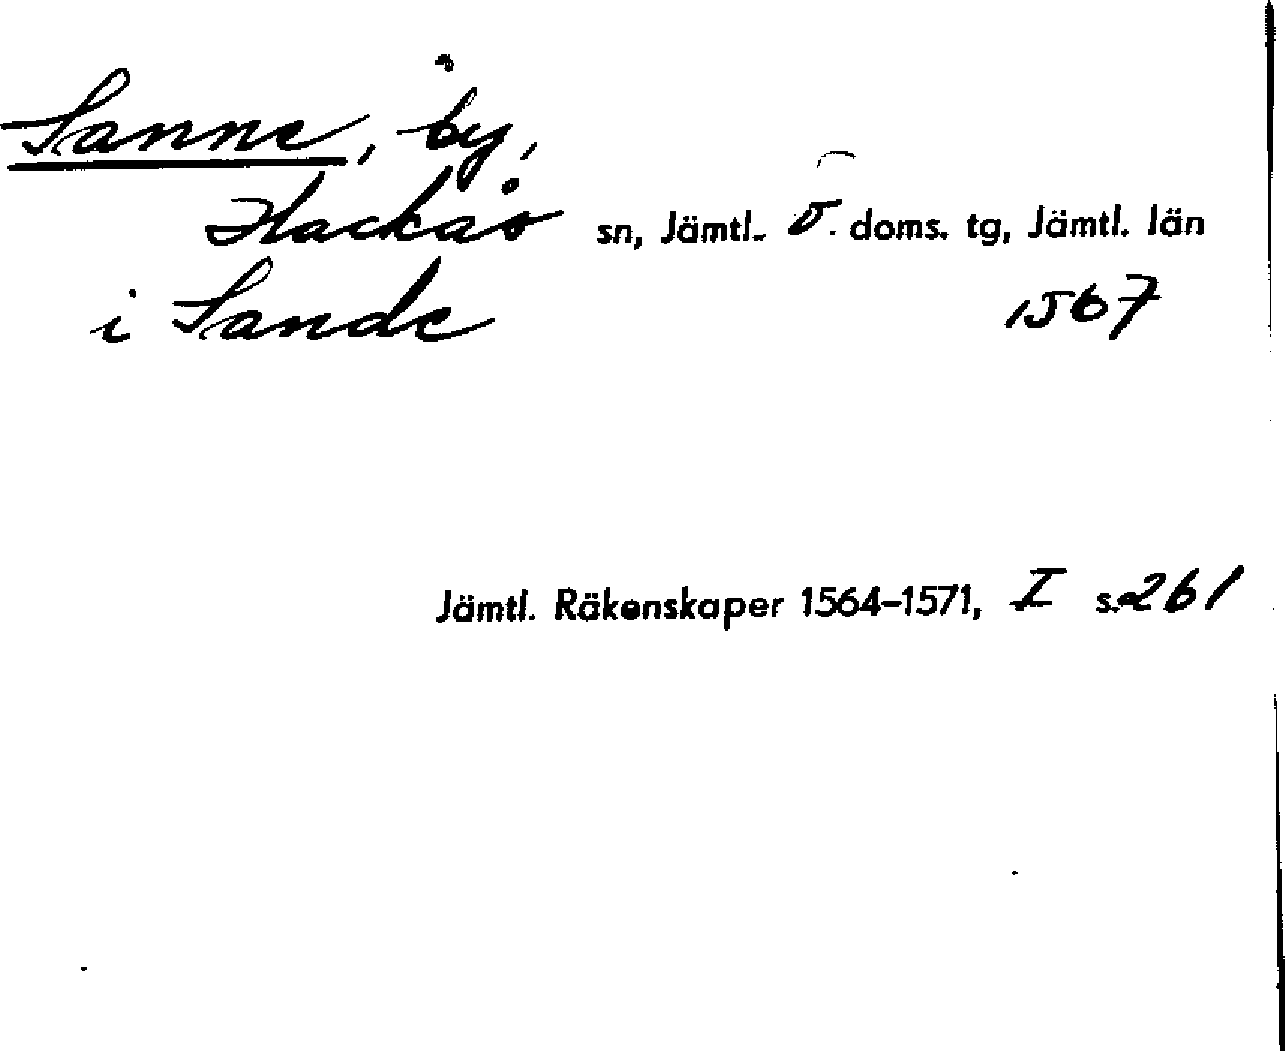 Sanne, by,
Hackås sn, Jämtl. v. doms. tg, Jämtl. län
i Sande 1567
Jämtl. Räkenskaper 1564-1571, I s. 261